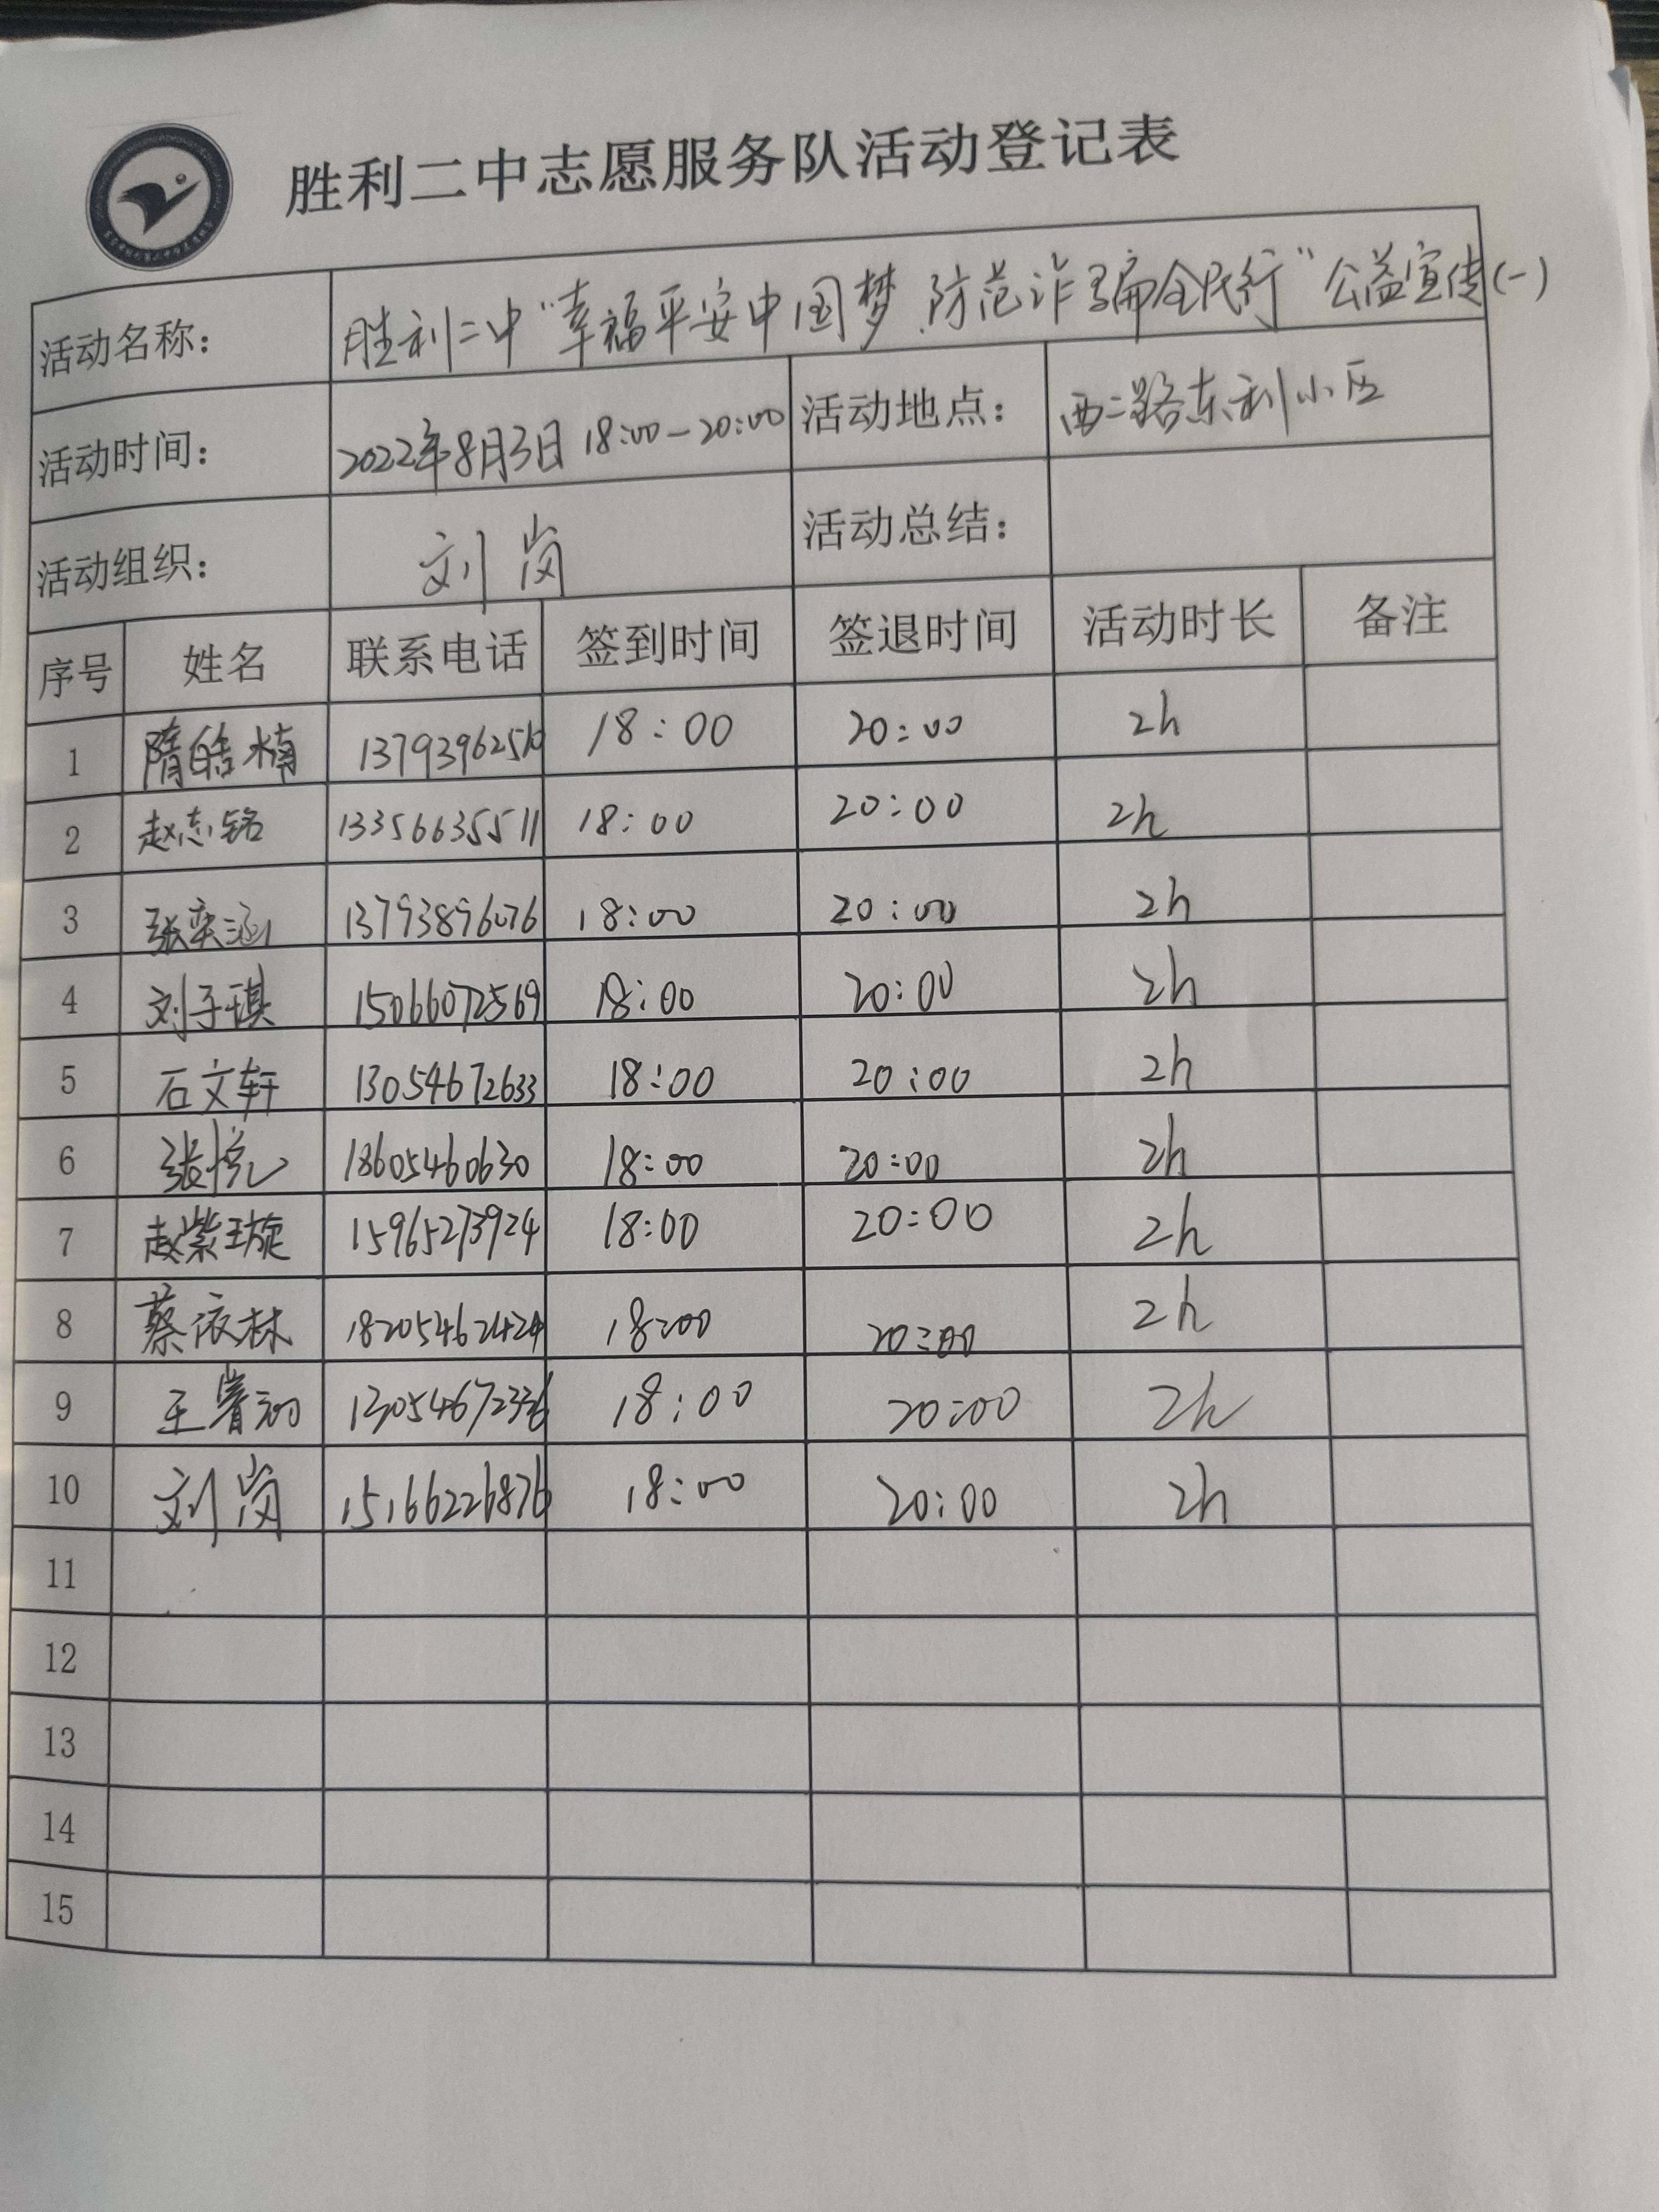 胜利二中志愿服务队活动登记表
活动名称： 胜利二中“幸福平安中国梦，防范诈骗全民行”公益宣传(一)
活动时间： 2022年8月3日 18:00-20:00 活动地点： 西二路东利小区
活动组织： 刘岗 活动总结：
序号 姓名 联系电话 签到时间 签退时间 活动时长 备注
1 隋皓楠 13793962510 18:00 20:00 2h
2 赵志铭 13356635511 18:00 20:00 2h
3 张奕涵 13793896076 18:00 20:00 2h
4 刘子琪 15066072569 18:00 20:00 2h
5 石文轩 13054672633 18:00 20:00 2h
6 张悦 18605460630 18:00 20:00 2h
7 赵紫璇 15965273924 18:00 20:00 2h
8 蔡依林 18205462424 18:00 20:00 2h
9 王睿 18:00 20:00 2h
10 刘岗 15166226876 18:00 20:00 2h
11
12
13
14
15